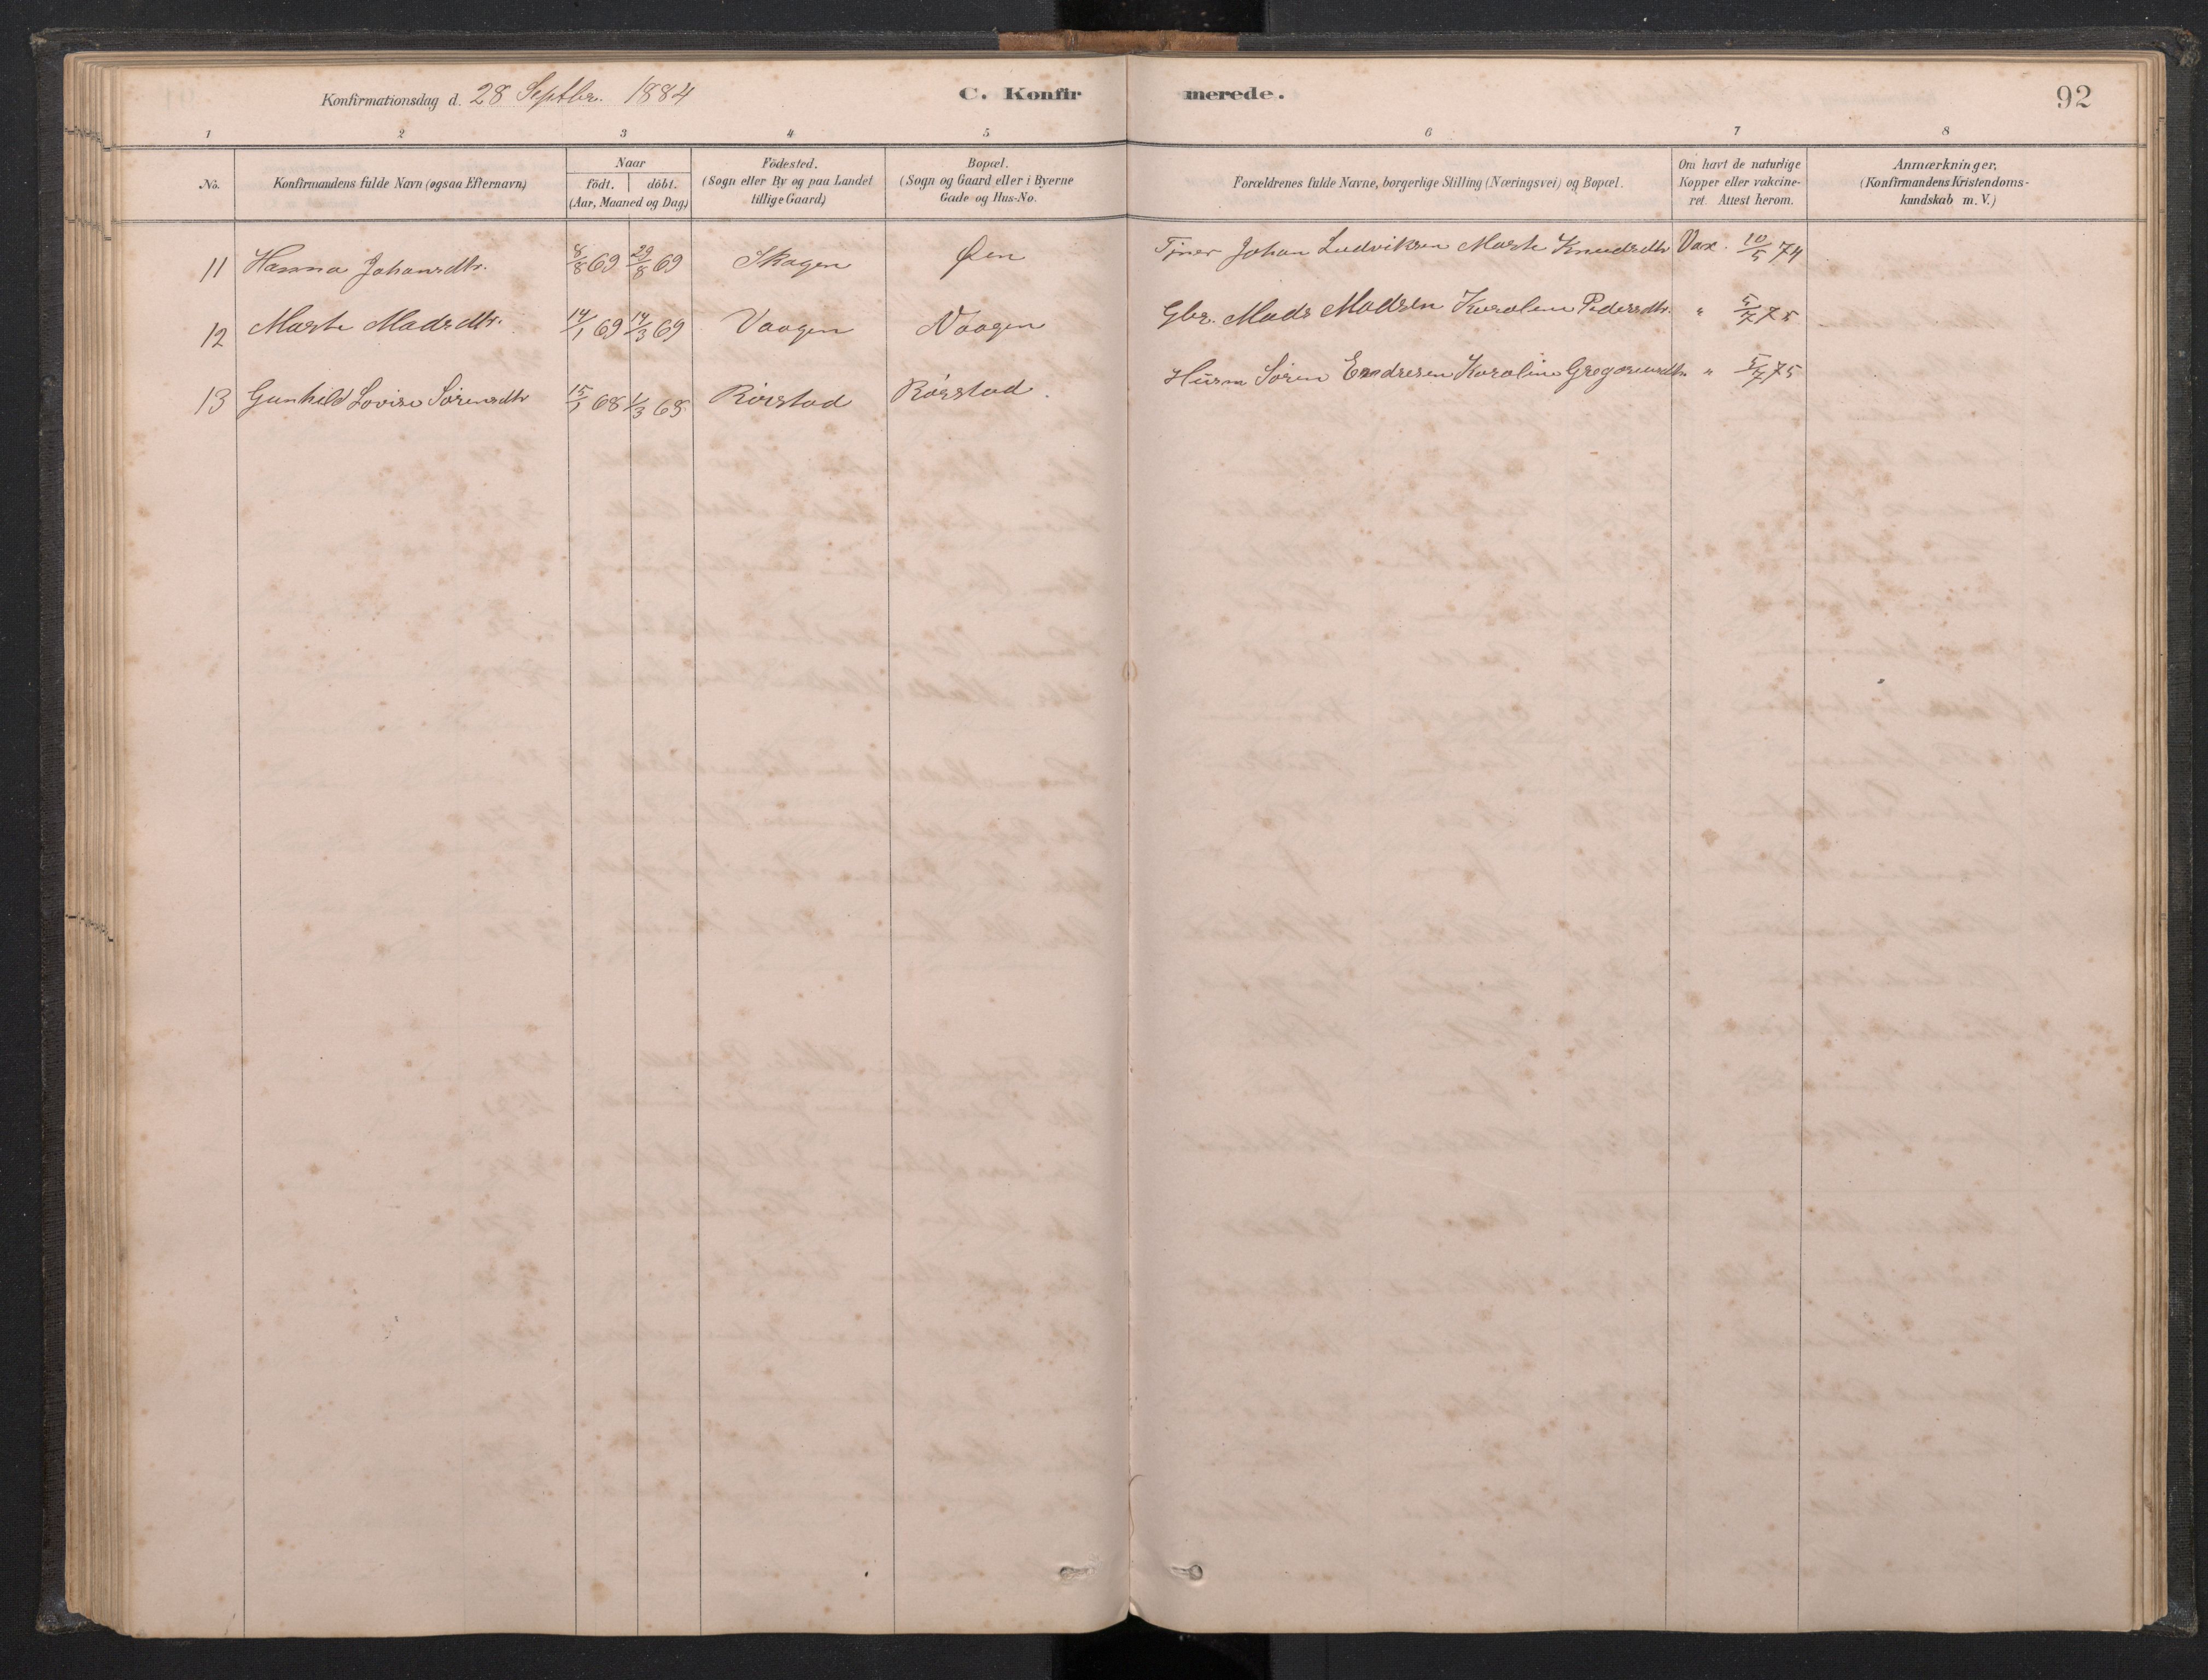 Konfirmationsdag d. 28 Septbr. 1884
C. Konfirmerede.
92
1 2 3 4 5 6 7 8
No.
Konfirmandens fulde Navn (ogsaa Efternavn)
Naar
födt. döbt.
(Aar, Maaned og Dag)
Födested.
(Sogn eller By og paa Landet
tillige Gaard)
Bopæl.
(Sogn og Gaard eller i Byerne
Gade og Hus-No.
Forældrenes fulde Navne, borgerlige Stilling (Næringsvei) og Bopæl.
Om havt de naturlige
Kopper eller vakcine-
ret. Attest herom.
Anmærkninger,
(Konfirmandens Kristendoms-
kundskab m. V.)
11 Hanna Johansdtr. 8/8 69 29/8 69 Skagen Øen Tjner Johan Ludviksen Marte Knudsdtr Vax. 10/5 74
12 Marte Madsdtr. 14/1 69 14/3 69 Vaagen Vaagen Gbr. Mads Madsen Karolene Pedersdtr. " 5/7 75
13 Gunhild Lovise Sörensdtr 15/1 68 1/3 68 Rörstad Rörstad. Husm Sören Endresen Karoline Gregoriusdtr " 5/7 75